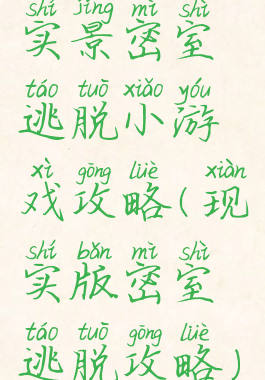 shí jǐng mì shì
实景密室
táo tuō xiǎo yóu
逃脱小游
xì gōng lüè xiàn
戏攻略(现
shí bǎn mì shì
实版密室
táo tuō gōng lüè
逃脱攻略)